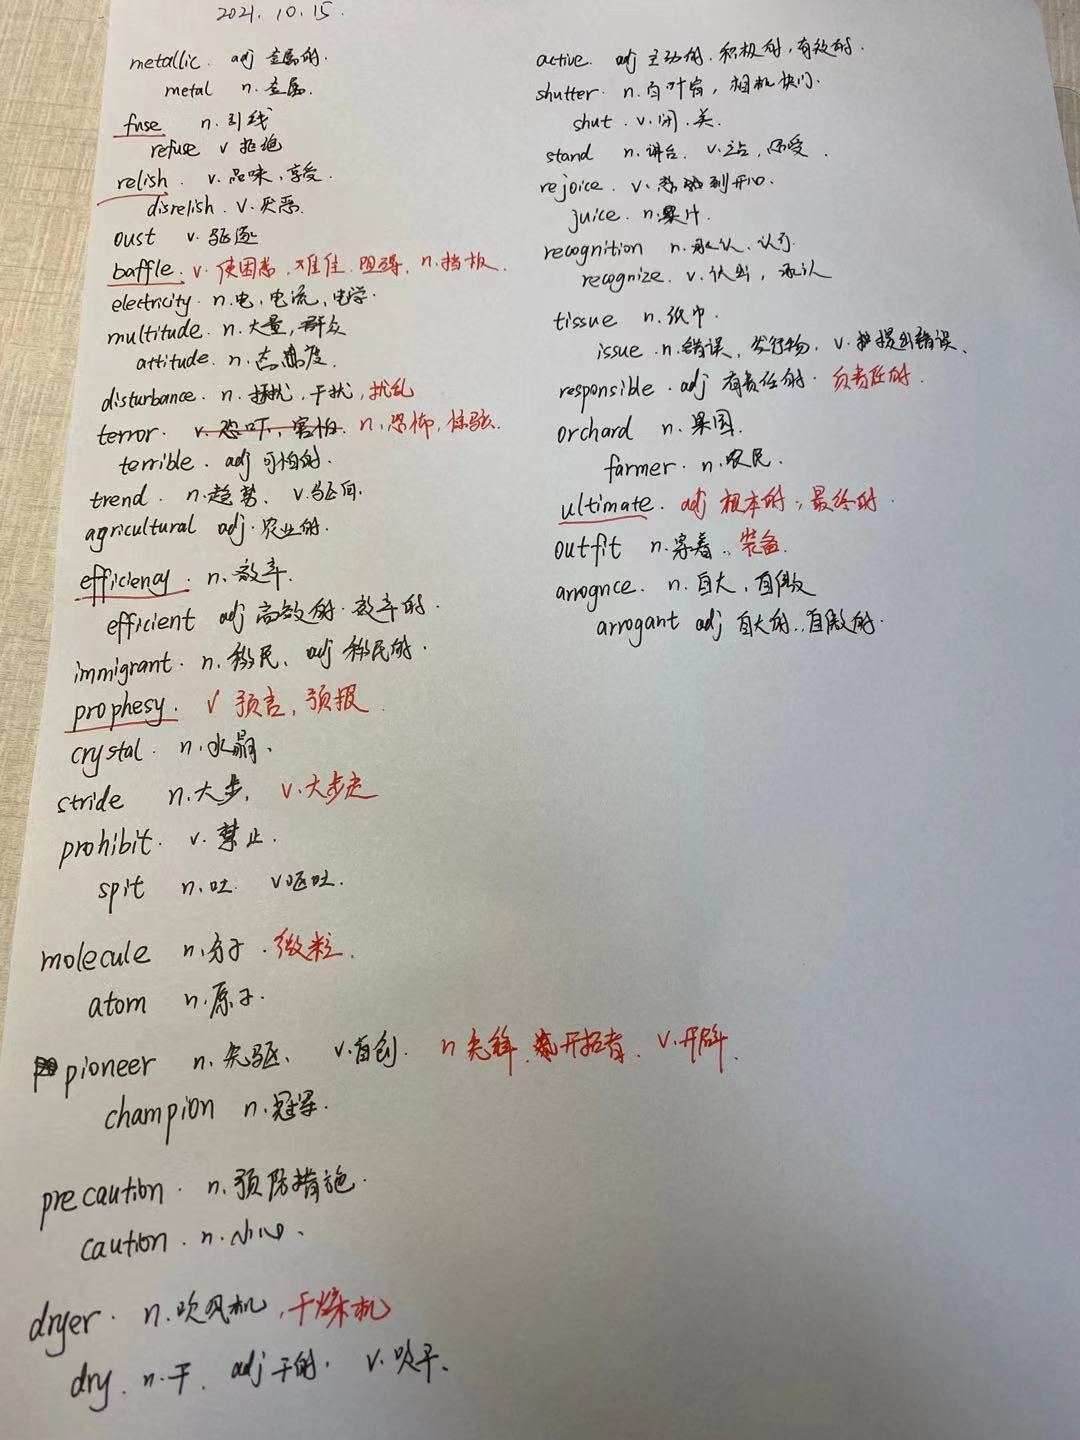 2021.10.15.
metallic. adj 金属的.
metal n.金属.
fuse n.引线
refuse v 拒绝
relish. v.品味,享受.
disrelish.v.厌恶.
oust v.驱逐
baffle. v.使困惑,难住,阻碍,n.挡板.
electricity.n.电,电流,电学.
multitude.n.大量,群众
attitude.n.态度.
disturbance.n.打扰,干扰,扰乱
terror. v.恐吓,害怕. n.恐怖,惊骇.
terrible.adj可怕的.
trend.n.趋势、v.驱向.
agricultural adj.农业的.
efficiency.n.效率.
efficient adj高效的.效率的.
immigrant.n.移民、adj移民的.
prophesy. v 预言,预报.
crystal.n.水晶、
stride n.大步, v.大步走
prohibit. v.禁止.
spit n.吐 v呕吐.
molecule n.分子.微粒.
atom n.原子.
pioneer n.先驱、v.首创. n先锋 开拓者. v.开辟.
champion n.冠军.
precaution. n.预防措施.
caution.n.小心、
dryer. n.吹风机,干燥机
dry.n.干. adj干的. v.吹干、
active. adj主动的.积极的,有效的.
shutter.n.百叶窗,相机快门.
shut.v.闭.关.
stand n.讲台. v.站,忍受.
rejoice. v.感到开心.
juice.n.果汁.
recognition n.承认.认可.
recognize. v.认出,承认
tissue n.纸巾.
issue.n.错误,发行物, v.提出错误、
responsible.adj有责任的.负责任的.
orchard n.果园.
farmer.n.农民.
ultimate. adj根本的,最终的.
outfit n.穿着.,装备.
arrognce. n.自大,自傲
arrogant adj自大的.,自傲的.